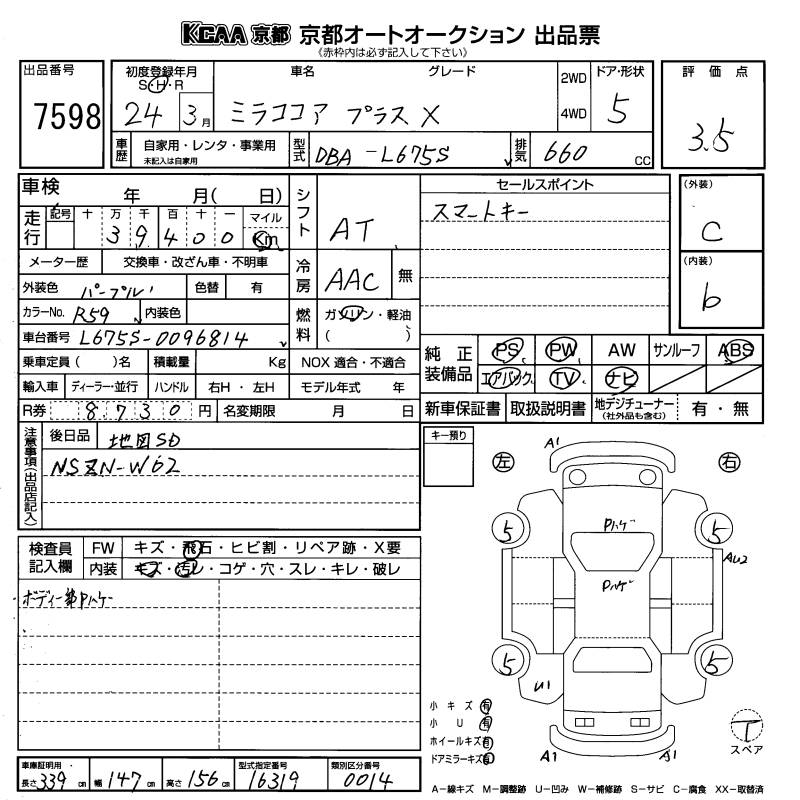 KCAA 京都 京都オートオークション 出品票
《赤枠内は必ず記入して下さい》
出品番号 7598
初度登録年月 S・H・R 24 3月
車名 グレード ミラココア プラス X
2WD 4WD
ドア・形状 5
評価点 3.5
車歴 自家用・レンタ・事業用 未記入は自家用
型式 DBA-L675S
排気 660 CC
車検 年 月( 日)
走行 記号 十 万 千 百 十 一 マイル
39400 Km
メーター歴 交換車・改ざん車・不明車
外装色 パープル 色替 有
カラーNo. R59 内装色
車台番号 L675S-0096814
乗車定員( )名 積載量 Kg NOX 適合・不適合
輸入車 ディーラー・並行 ハンドル 右H・左H モデル年式 年
R券 8730 円 名変期限 月 日
シフト AT
冷房 AAC 無
燃料 ガソリン・軽油 ( )
セールスポイント
スマートキー
(外装) C
(内装) b
純正装備品 PS PW AW サンルーフ ABS
エアバック TV ナビ
新車保証書 取扱説明書 地デジチューナー (社外品も含む) 有・無
注意事項(出品店記入)
後日品 地図SD
NSZN-W62
キー預り
検査員記入欄
FW キズ・飛石・ヒビ割・リペア跡・X要
内装 キズ・汚レ・コゲ・穴・スレ・キレ・破レ
ボディー第Pハゲー
左 右
A1
5 5
Pハゲー
AU2
Pハゲー
5 5
U1
A1 A1
小キズ 有
小U 有
ホイールキズ 有
ドアミラーキズ 有
T
スペア
車庫証明用・長さ 339 cm 幅 147 cm 高さ 156 cm
型式指定番号 16319
類別区分番号 0014
A-線キズ M-調整跡 U-凹み W-補修跡 S-サビ C-腐食 XX-取替済